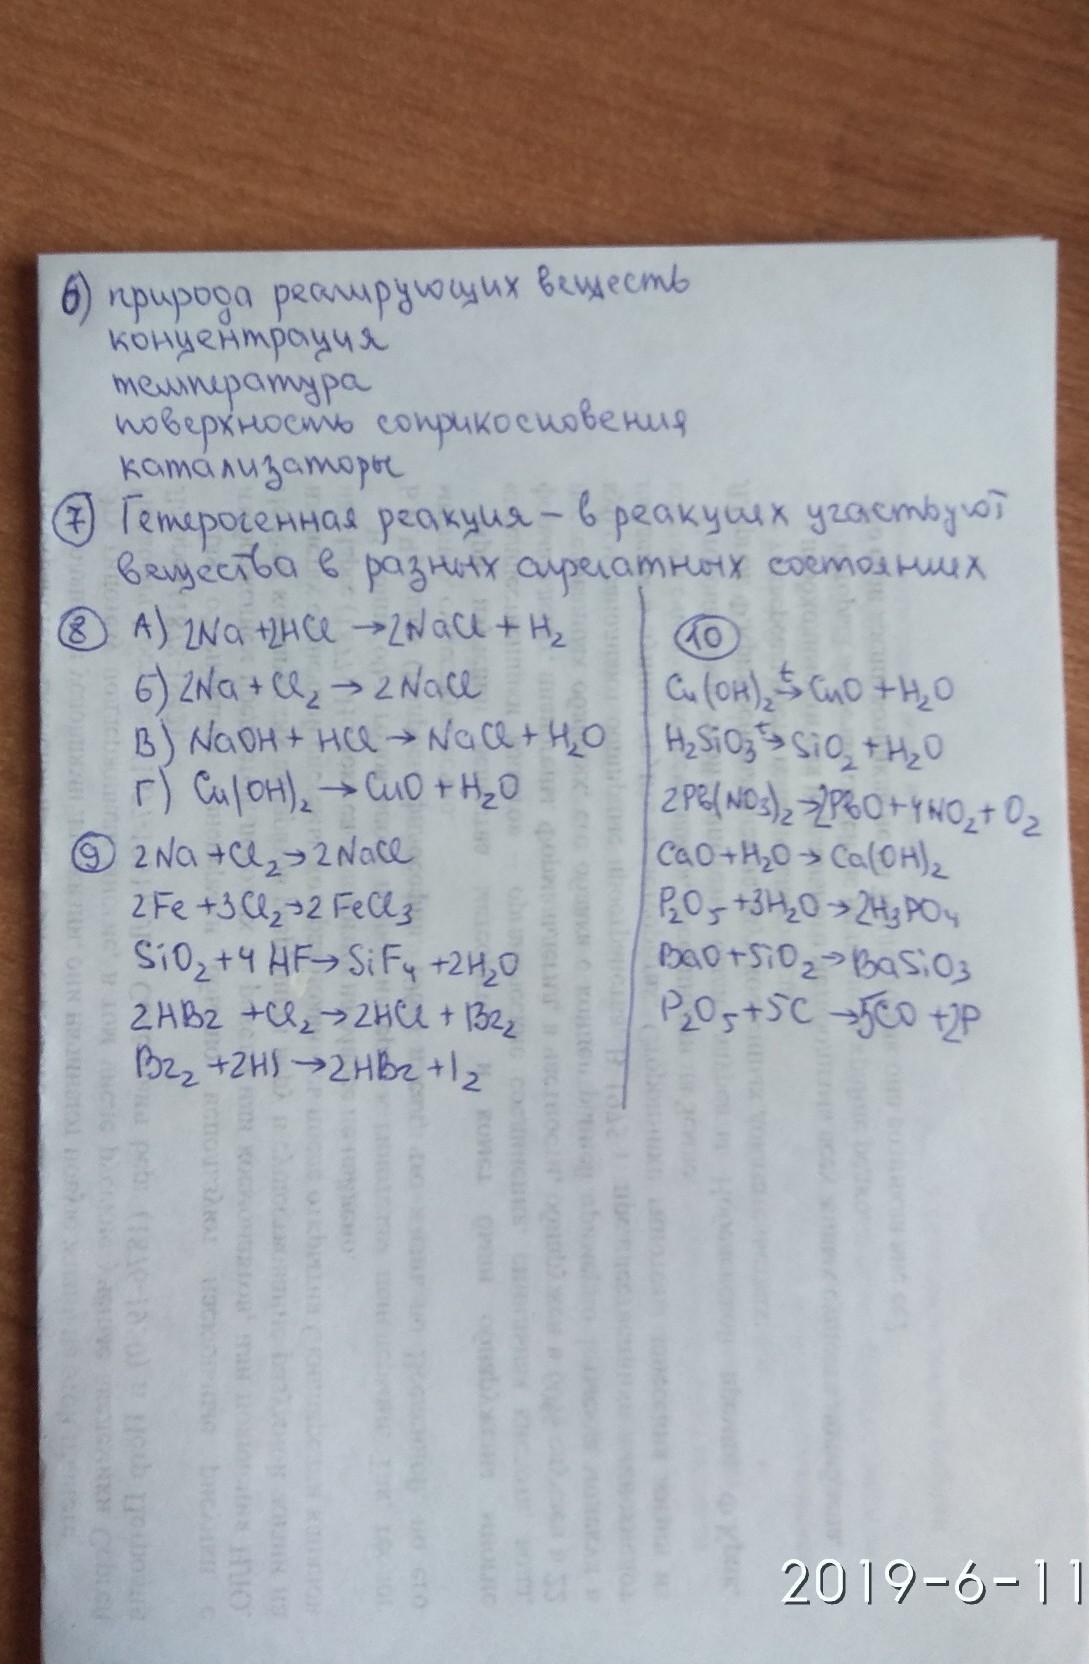 6) природа реагирующих веществ
концентрация
температура
поверхность соприкосновения
катализаторы
7 Гетерогенная реакция – в реакциях участвуют
вещества в разных агрегатных состояниях
8 А) 2Na + 2HCl → 2NaCl + H₂
Б) 2Na + Cl₂ → 2NaCl
В) NaOH + HCl → NaCl + H₂O
Г) Cu(OH)₂ → CuO + H₂O
9 2Na + Cl₂ → 2NaCl
2Fe + 3Cl₂ → 2FeCl₃
SiO₂ + 4HF → SiF₄ + 2H₂O
2HBr + Cl₂ → 2HCl + Br₂
Br₂ + 2HI → 2HBr + I₂
10
Cu(OH)₂ t→ CuO + H₂O
H₂SiO₃ t→ SiO₂ + H₂O
2Pb(NO₃)₂ → 2PbO + 4NO₂ + O₂
CaO + H₂O → Ca(OH)₂
P₂O₅ + 3H₂O → 2H₃PO₄
BaO + SiO₂ → BaSiO₃
P₂O₅ + 5C → 5CO + 2P
2019-6-11